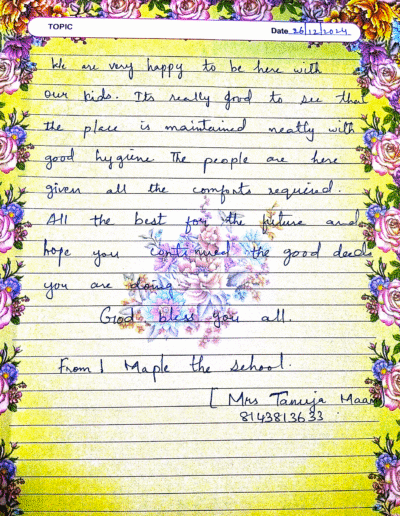 TOPIC
Date 26/12/2024
We are very happy to be here with
our kids. Its really good to see that
the place is maintained neatly with
good hygiene. The people are here
given all the comforts required.
All the best for the future and
hope you continued the good deeds
you are doing.
God bless you all.
From Maple the school.
[ Mrs Tanuja Maam
8143813633